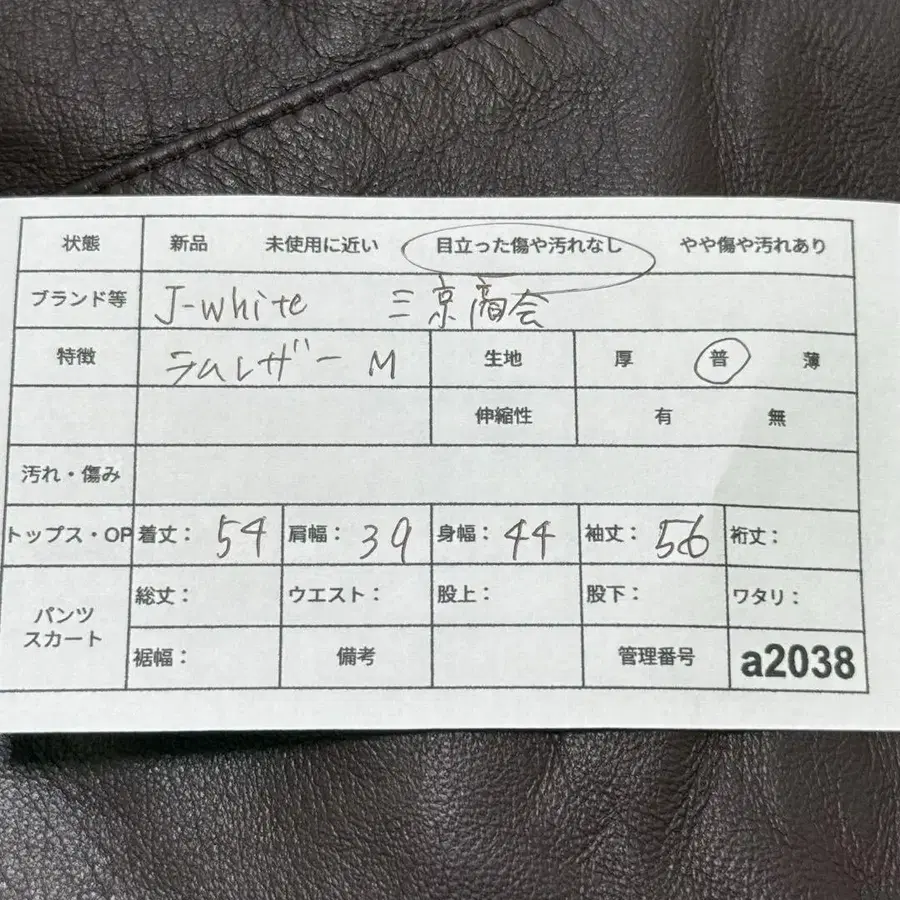 状態 新品 未使用に近い 目立った傷や汚れなし やや傷や汚れあり
ブランド等 J-white 三京商会
特徴 ラムレザー M 生地 厚 普 薄
伸縮性 有 無
汚れ・傷み
トップス・OP 着丈: 54 肩幅: 39 身幅: 44 袖丈: 56 裄丈:
パンツ スカート 総丈: ウエスト: 股上: 股下: ワタリ:
裾幅: 備考 管理番号 a2038